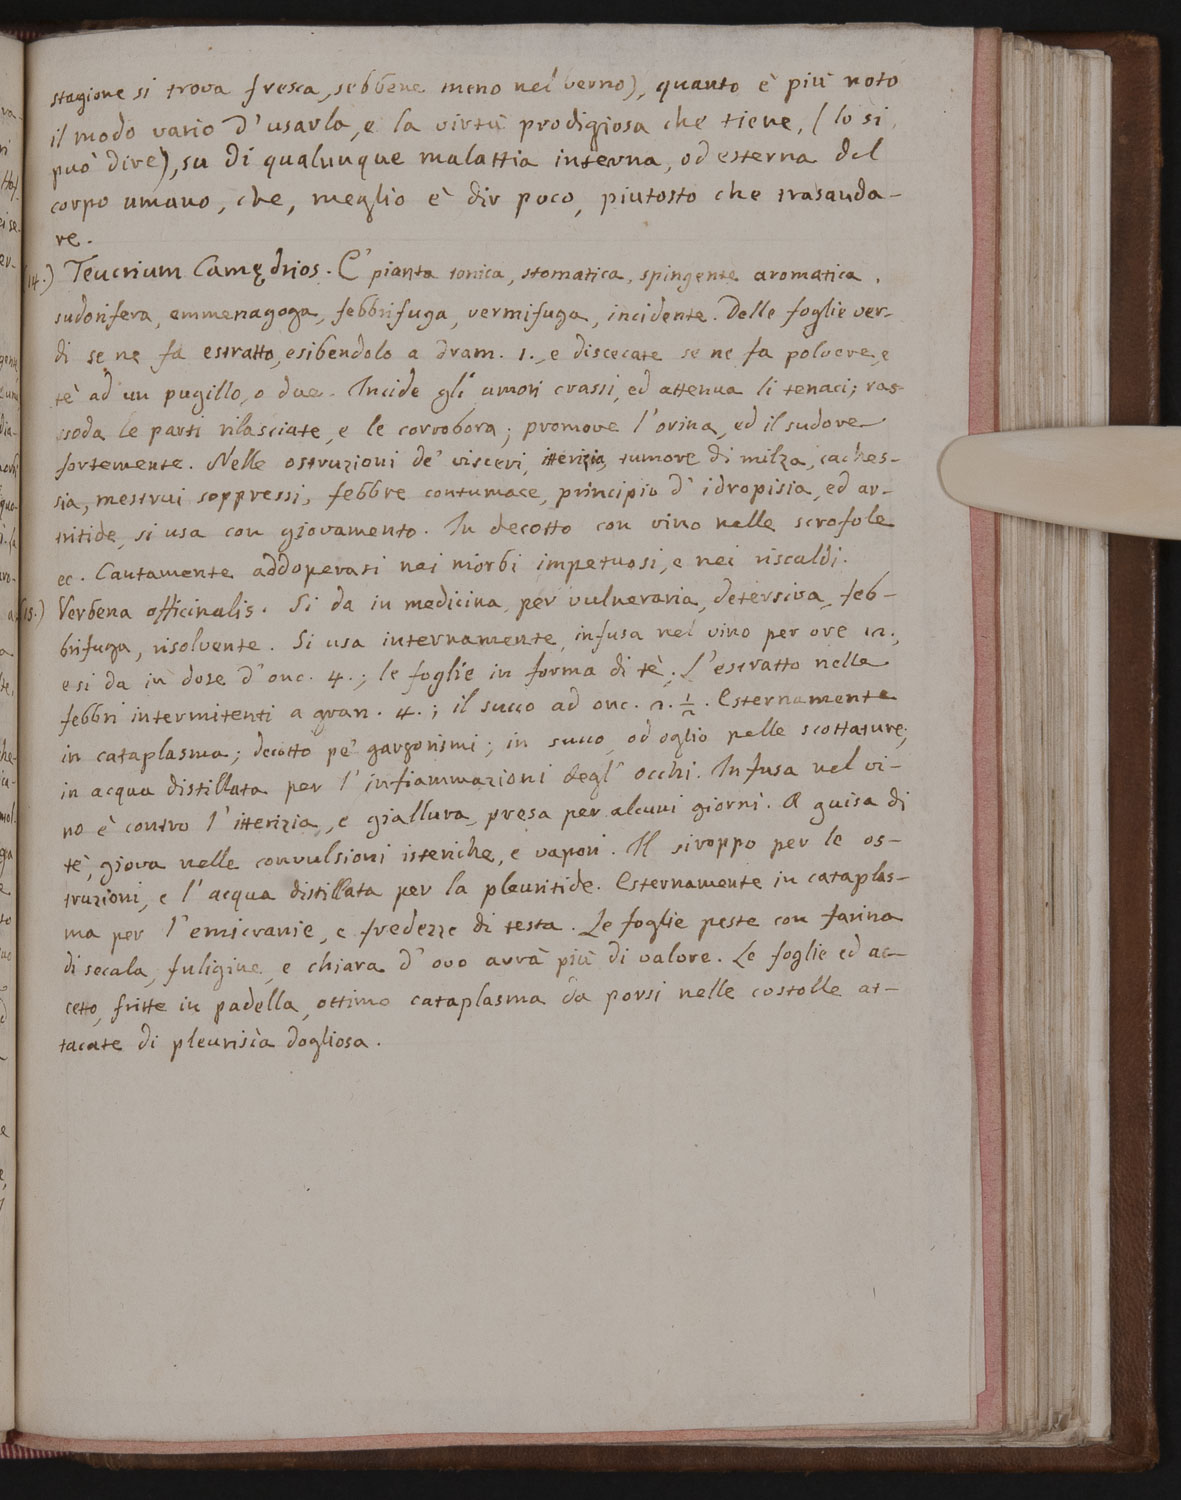 stagione si trova fresca, sebbene meno nel verno), quanto è più noto
il modo vario d'usarla, e la virtù prodigiosa che tiene, (lo si
può dire), su di qualunque malattia interna, od esterna del
corpo umano, che, meglio è dir poco, piutosto che trasanda-
re.
14.) Teucrium Camędrios. E' pianta tonica, stomatica, spingente aromatica,
sudorifera, emmenagoga, febbrifuga, vermifuga, incidente. Delle foglie ver-
di se ne fa estratto, esibendolo a dram. 1., e diseccate se ne fa polvere, e
tè ad un pugillo, o due. Incide gli umori crassi, ed attenua li tenaci; ras-
soda le parti rilasciate, e le corrobora; promove l'orina, ed il sudore
fortemente. Nelle ostruzioni de' visceri, itterizia, tumore di milza, caches-
sia, mestrui soppressi, febbre contumace, principio d'idropisia, ed ar-
tritide, si usa con giovamento. In decotto con vino nelle scrofole
ec. Cautamente addoperasi nei morbi impetuosi, e nei riscaldi.
15.) Verbena officinalis. Si da in medicina per vulneraria, detersiva, feb-
brifuga, risolvente. Si usa internamente, infusa nel vino per ore 12.,
e si da in dose d'onc. 4.; le foglie in forma di tè. L'estratto nelle
febbri intermitenti a gran. 4.; il succo ad onc. 2. 1/2. Esternamente
in cataplasma; decotto pe' gargorismi; in succo, od oglio nelle scottature;
in acqua distillata per l'infiammazioni degl' occhi. Infusa nel vi-
no è contro l'itterizia, e giallura, presa per alcuni giorni. A guisa di
tè, giova nelle convulsioni isteriche, e vapori. Il siroppo per le os-
truzioni, e l'acqua distillata per la pleuritide. Esternamente in cataplas-
ma per l'emicranie, e fredezze di testa. Le foglie peste con farina
di secala, fuligine, e chiara d'ovo avrà più di valore. Le foglie ed ac-
cetto, fritte in padella, ottimo cataplasma da porsi nelle costolle at-
tacate di pleurisìa dogliosa.